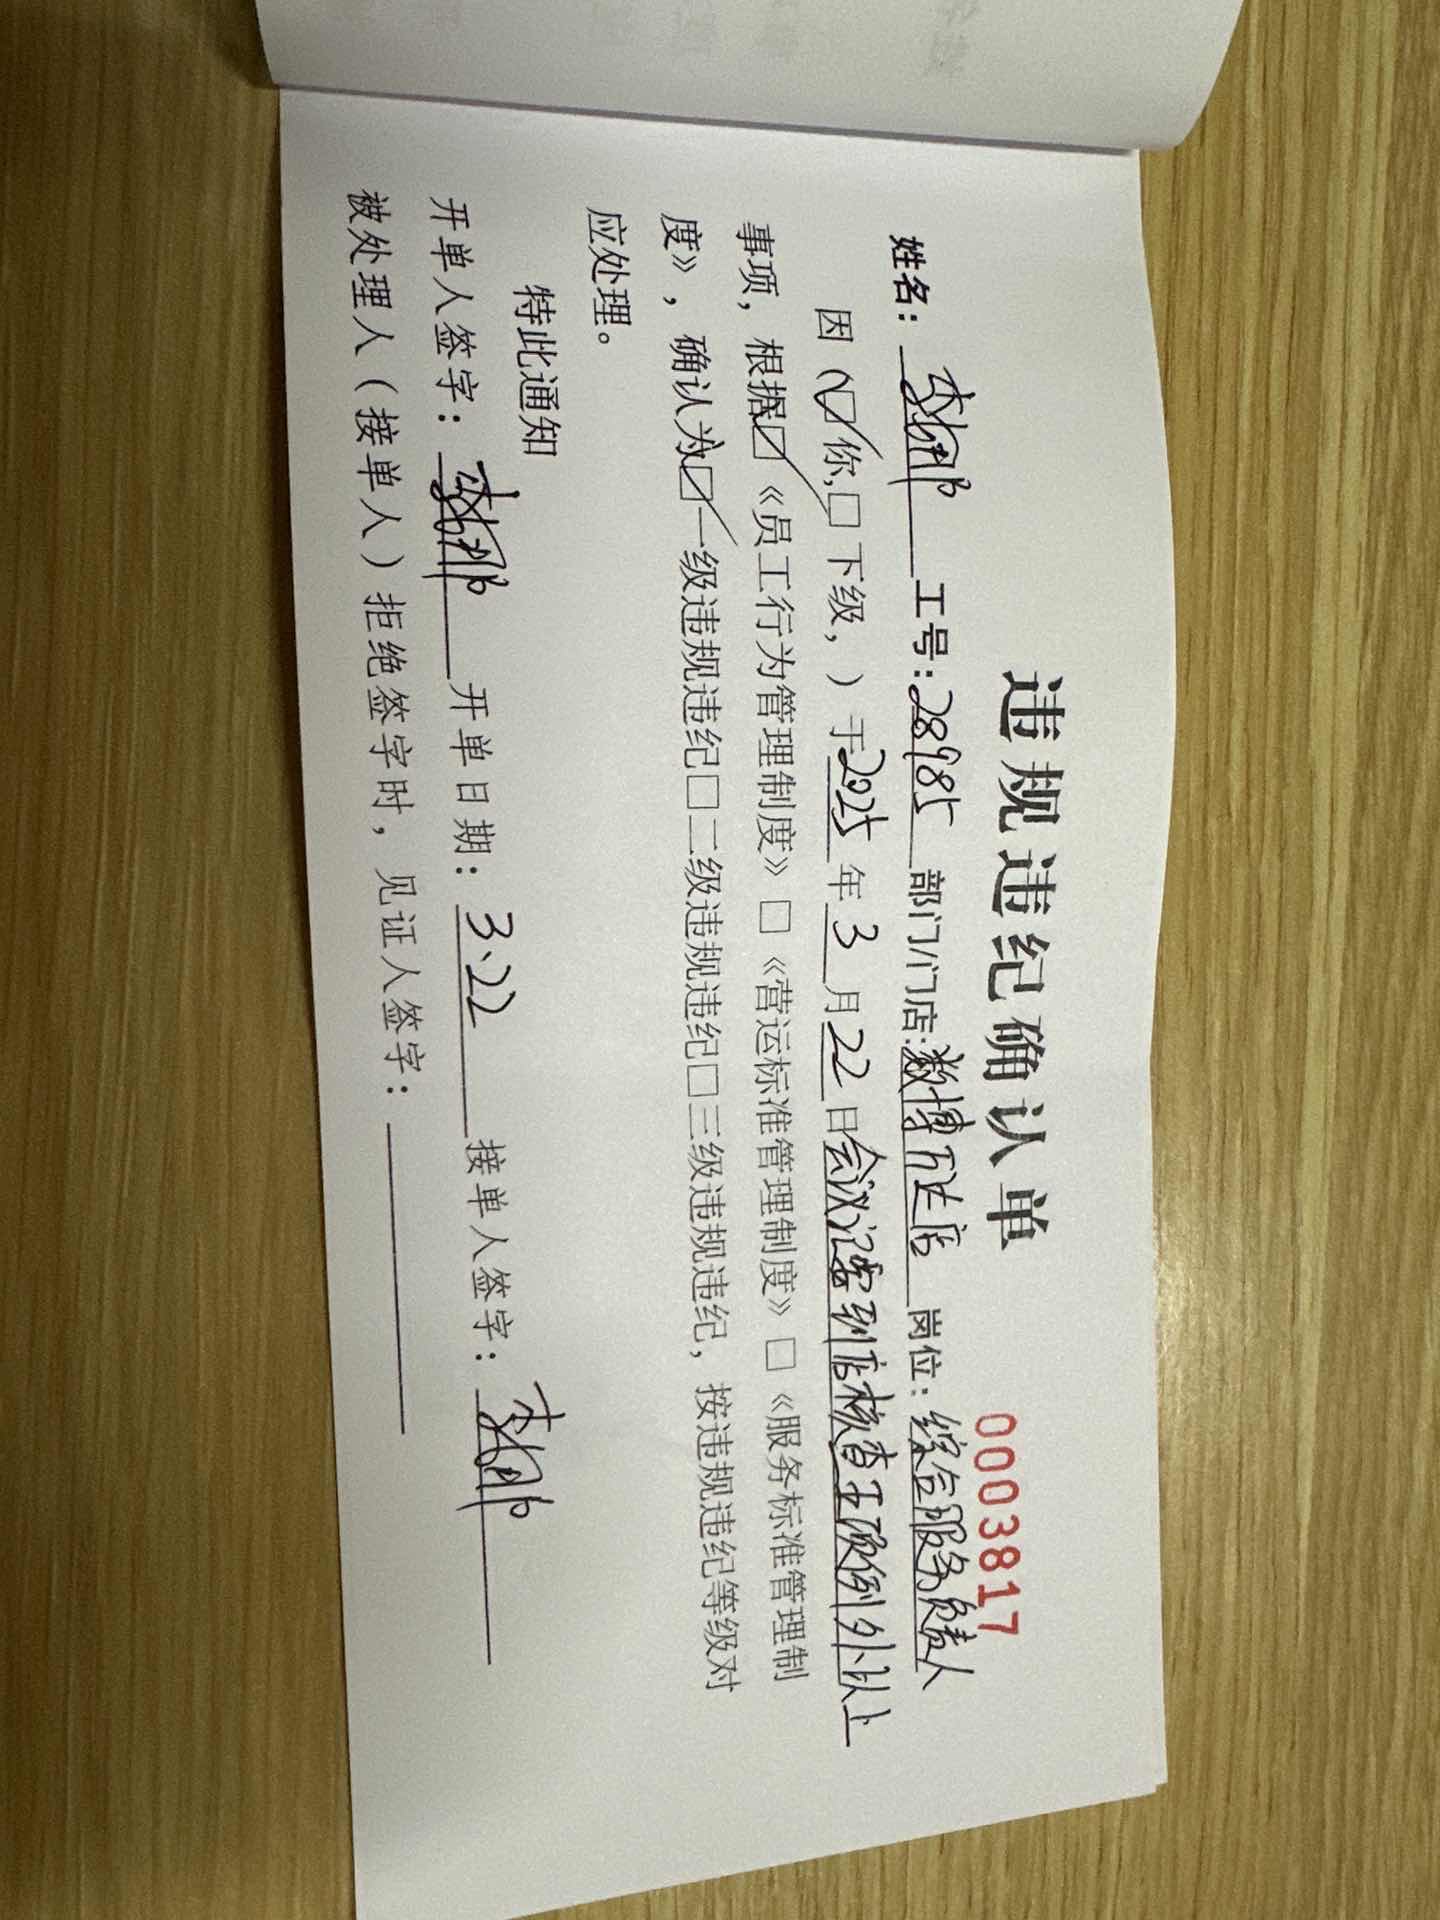 违规违纪确认单
0003817
姓名： 工号：28985 部门/门店：数博万达店 岗位：综合服务负责人
因（☑你，□下级，）于2025年3月22日会议记要到店核查王顶例外以上
事项，根据☑《员工行为管理制度》□《营运标准管理制度》□《服务标准管理制
度》，确认为☑一级违规违纪□二级违规违纪□三级违规违纪，按违规违纪等级对
应处理。
特此通知
开单人签字： 开单日期：3.22 接单人签字：
被处理人（接单人）拒绝签字时，见证人签字：